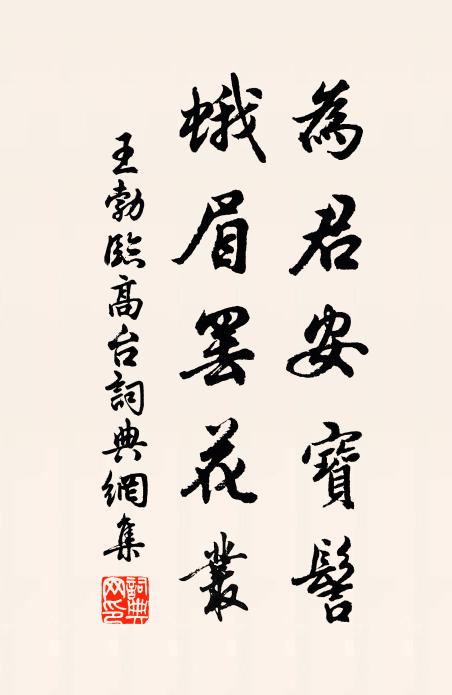 為君安寶髻
蛾眉罷花叢
王勃臨高台詞典網集
詞典网印